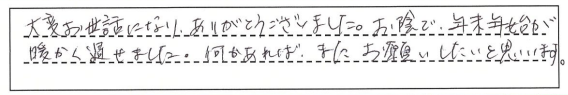 大変お世話になり、ありがとうございました。お陰で、年末年始が
暖かく過せました。何かあれば、またお願いしたいと思いいます。